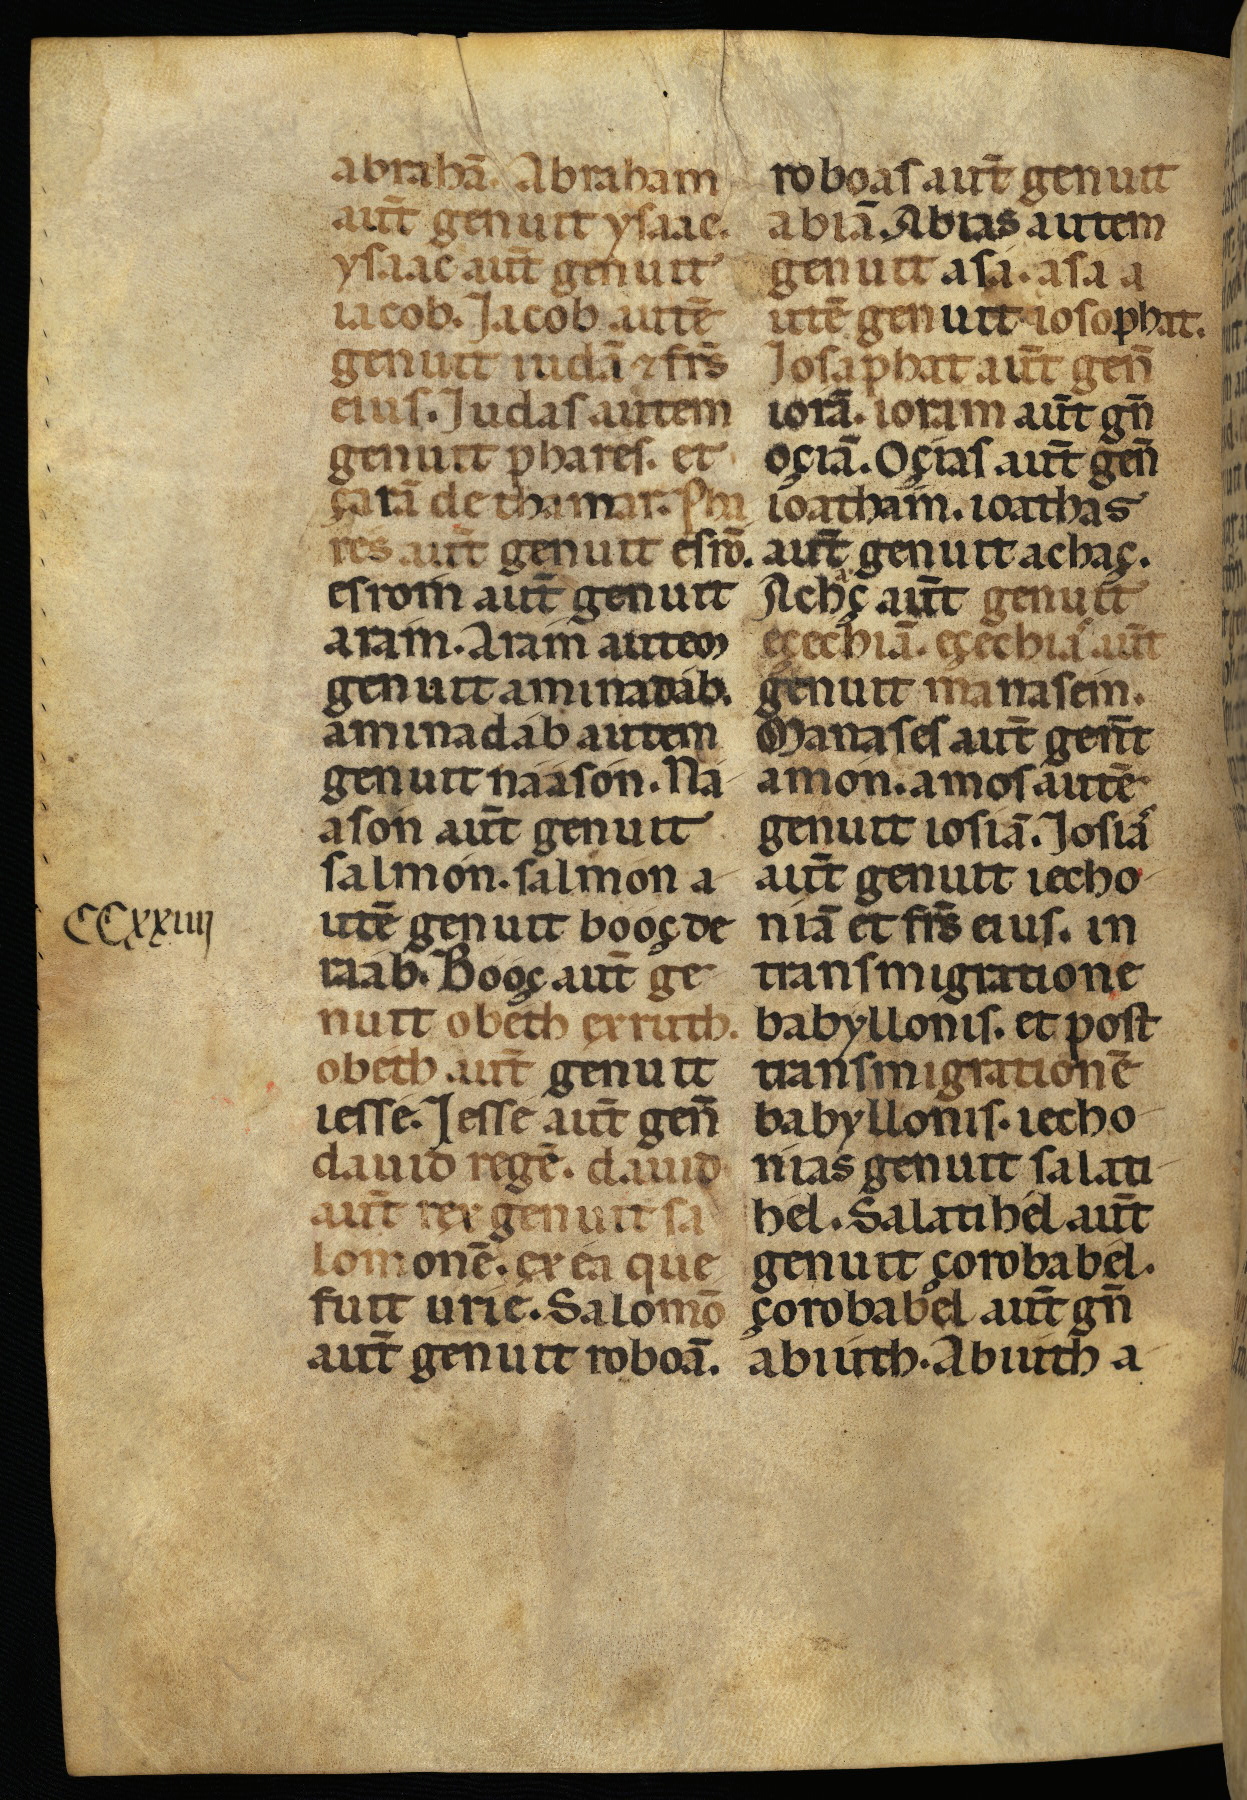 abrahā. Abraham
aut̄ genuit ysaac.
ysaac aut̄ genuit
iacob. Jacob autē
genuit iudā ⁊ fr̄s
eius. Judas autem
genuit phares. et
çarā de thamar. Pha
res aut̄ genuit esrō.
esrom aut̄ genuit
aram. Aram autem
genuit aminadab.
aminadab autem
genuit naason. Na
ason aut̄ genuit
salmon. salmon a
CCxxiiij
utē genuit booç de
raab. Booç aut̄ ge
nuit obeth ex ruth.
obeth aut̄ genuit
iesse. Jesse aut̄ gen̄
dauid regē. dauid
aut̄ rex genuit sa
lomonē. ex ea que
fuit urie. Salomō
aut̄ genuit roboā.
roboas aut̄ genuit
abiā. Abias autem
genuit asa. asa a
utē genuit iosophat.
Josaphat aut̄ gen̄
iorā. ioram aut̄ gn̄
oçiā. Oçias aut̄ gen̄
ioatham. ioathas
aut̄ genuit achaç.
Achaç aut̄ genuit
eçechiā. eçechias aut̄
genuit manasem.
Manases aut̄ gen̄t
amon. amos autē
genuit iosiā. Josias
aut̄ genuit iecho
niā et fr̄s eius. in
transmigratione
babyllonis. et post
transmigrationē
babyllonis. iecho
nias genuit salati
hel. Salatihel aut̄
genuit çorobabel.
çorobabel aut̄ gn̄
abiuth. Abiuth a